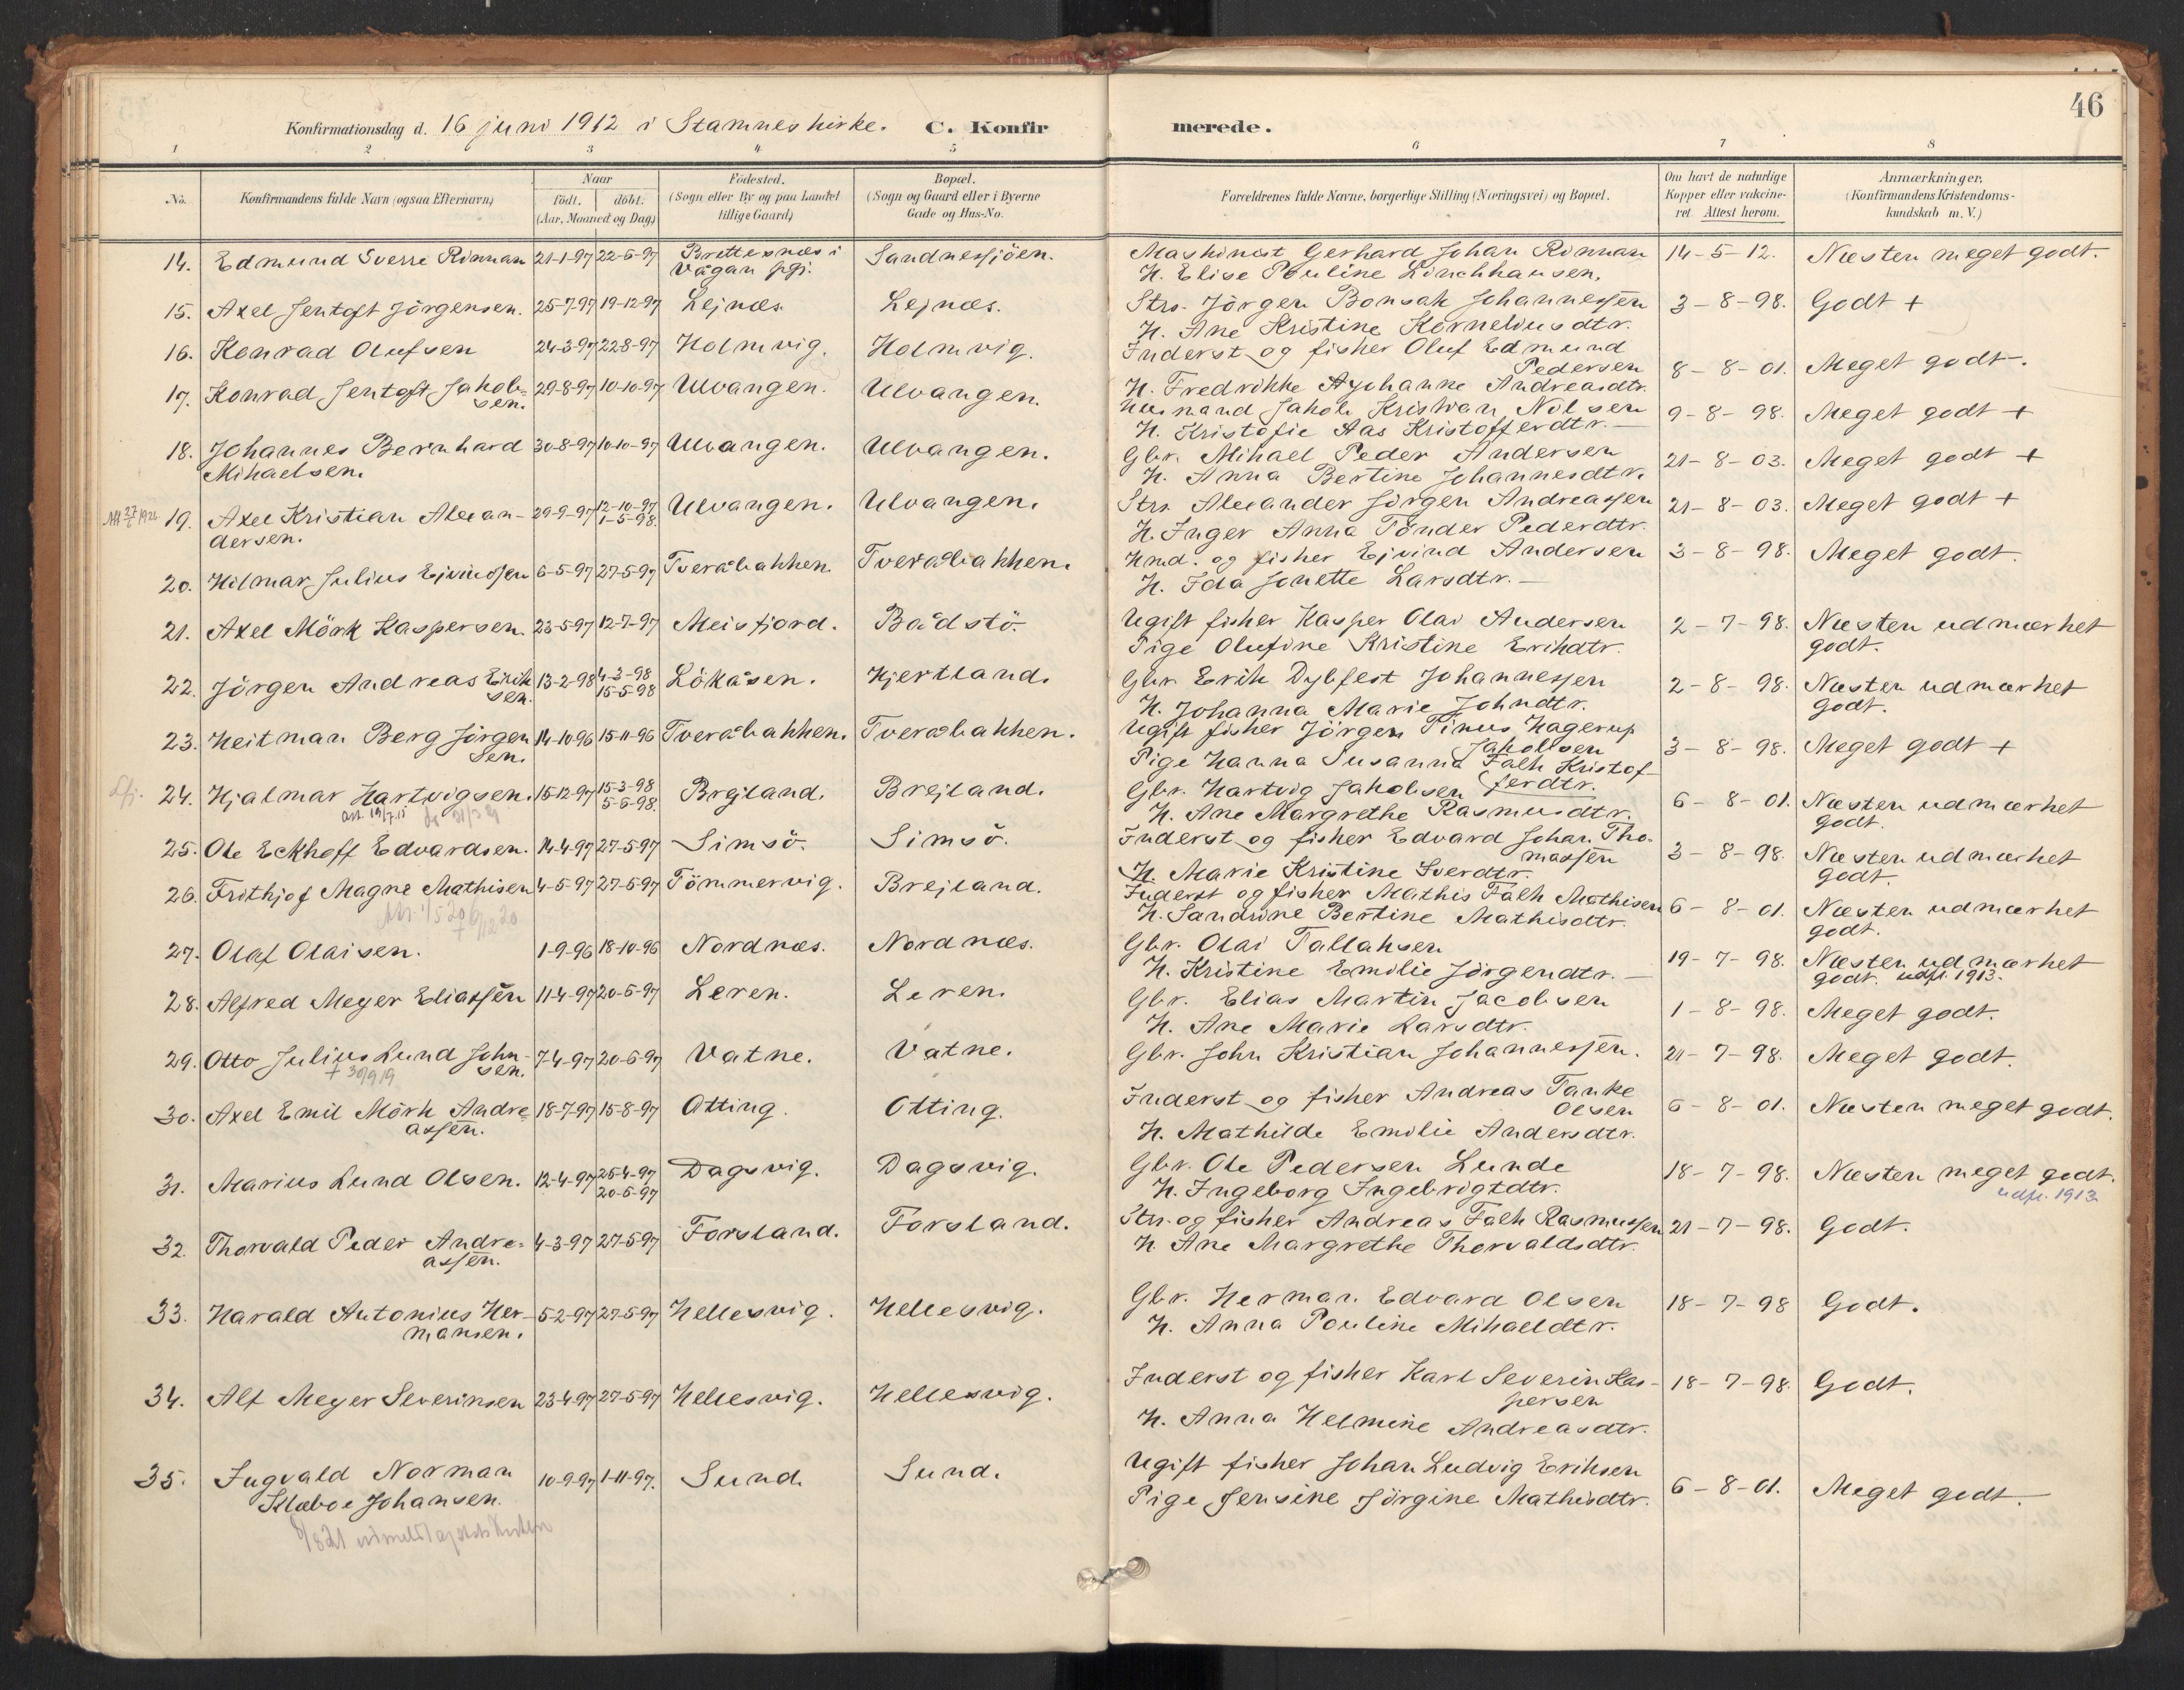 46
Konfirmationsdag d. 16 juni 1912 i Stamnes kirke. C. Konfirmerede.
1 2 3 4 5 6 7 8
No. Konfirmandens fulde Navn (ogsaa Efternavn) Naar født. døbt. (Aar, Maaned og Dag) Fødested. (Sogn eller By og paa Landet tillige Gaard) Bopæl. (Sogn og Gaard eller i Byerne Gade og Hus-No. Forældrenes fulde Navne, borgerlige Stilling (Næringsvei) og Bopæl. Om havt de naturlige Kopper eller vakcineret. Attest herom. Anmærkninger, (Konfirmandens Kristendomskundskab m. V.)
14. Edmund Sverre Rinnan 21-1-97 22-6-97 Brettesnæs i Vågan pgj. Sandnessjöen. Maskinist Gerhard Johan Rinnan 14-5-12. Næsten meget godt.
H. Elise Pouline Linchhausen.
15. Axel Jentoft Jörgensen. 25-7-97 19-12-97 Lejnæs. Lejnæs. Strs. Jörgen Bonsak Johannessen 3-8-98. Godt +
H. Ane Kristine Korneliusdtr.
16. Konrad Olufsen 24-3-97 22-8-97 Holmvig. Holmvig. Inderst og fisker Oluf Edmund
Pedersen 8-8-01. Meget godt.
H. Fredrikke Ayohanne Andreasdtr.
17. Konrad Jentoft Jakobsen. 29-8-97 10-10-97 Ulvangen. Ulvangen. Husmand Jakob Kristian Nilsen 9-8-98. Meget godt +
H. Kristofie Aas Kristofferdtr.
18. Johannes Bernhard 30-8-97 10-10-97 Ulvangen. Ulvangen. Gbr. Mihael Peder Andersen 21-8-03. Meget godt +
Mihaelsen. H. Anna Bertine Johannesdtr.
19. Axel Kristian Alexan- 29-9-97 12-10-97 Ulvangen. Ulvangen. Strs. Alexander Jörgen Andreassen 21-8-03. Meget godt +
dersen. 1-5-98. H. Inger Anna Tönder Pederdtr.
20. Hilmar Julius Ejvindsen 6-5-97 27-5-97 Tveråbakken. Tveråbakken. Hmd. og fisker Ejvind Andersen 3-8-98. Meget godt.
H. Ida Jonette Larsdtr.
21. Axel Mörk Kaspersen. 23-5-97 12-7-97 Meisfjord. Bådstö. Ugift fisker Kasper Olai Andersen 2-7-98. Næsten udmærket
Pige Olufine Kristine Erikdtr. godt.
22. Jörgen Andreas Eriksen. 13-2-98 4-3-98 Lökåsen. Hjertland. Gbr. Erik Dybfest Johannessen 2-8-98. Næsten udmærket
15-5-98 H. Johanna Marie Johndtr. godt.
23. Heitman Berg Jörgen 14-10-96 15-11-96 Tveråbakken. Tveråbakken. Ugift fisker Jörgen Tinus Hagerup
sen. Jakobsen 3-8-98. Meget godt +
Pige Hanna Susanna Falk Kristof-
ferdtr.
24. Hjalmar Hartvigsen. 15-12-97 15-3-98 Brejland. Brejland. Gbr. Hartvig Jakobsen 6-8-01. Næsten udmærket
5-6-98. H. Ane Margrethe Rasmusdtr. godt.
25. Ole Eckhoff Edvardsen. 14-4-97 27-5-97 Simsö. Simsö. Inderst og fisker Edvard Johan Tho-
massen 3-8-98. Næsten udmærket
H. Marie Kristine Iverdtr. godt.
26. Frithjof Magne Mathisen 4-5-97 27-5-97 Tömmervig. Brejland. Inderst og fisker Mathis Falk Mathisen 6-8-01. Næsten udmærket
H. Sandrine Bertine Mathisdtr. godt.
27. Olaf Olaisen. 1-9-96 18-10-96 Nordnæs. Nordnæs. Gbr. Olai Tallaksen 19-7-98. Næsten udmærket
H. Kristine Emilie Jörgendtr. godt. udfl. 1913.
28. Alfred Meyer Eliassen 11-4-97 20-6-97 Leren. Leren. Gbr. Elias Martin Jacobsen 1-8-98. Meget godt.
H. Ane Marie Larsdtr.
29. Otto Julius Lund John- 7-4-97 20-6-97 Vatne. Vatne. Gbr. John Kristian Johannessen. 21-7-98. Meget godt.
sen.
+ 30/9 19
30. Axel Emil Mörk Andre- 18-7-97 15-8-97 Otting. Otting. Inderst og fisker Andreas Tanke
assen. Olsen 6-8-01. Næsten meget godt.
H. Mathilde Emilie Andersdtr.
31. Marius Lund Olsen. 12-4-97 25-4-97 Dagsvig. Dagsvig. Gbr. Ole Pedersen Lunde 18-7-98. Næsten meget godt.
20-6-97 H. Ingeborg Ingebrigtdtr. udfl. 1913
32. Thorvald Peder Andre- 4-3-97 27-5-97 Forsland. Forsland. Strs. og fisker Andreas Falk Rasmussen 21-7-98. Godt.
assen. H. Ane Margrethe Thorvaldsdtr.
33. Harald Antonius Her- 5-2-97 27-5-97 Hellesvig. Hellesvig. Gbr. Herman Edvard Olsen 18-7-98 Godt.
mansen. H. Anna Pouline Mihaeldtr.
34. Alf Meyer Severinsen 23-4-97 27-5-97 Hellesvig. Hellesvig. Inderst og fisker Karl Severin Kas-
persen 18-7-98. Godt.
H. Anna Helmine Andreasdtr.
35. Ingvald Norman 10-9-97 1-11-97. Sund. Sund. Ugift fisker Johan Ludvig Eriksen 6-8-01. Meget godt.
Klæboe Johansen. Pige Jensine Jörgine Mathisdtr.
8/8 21 utmeldt af statskirken